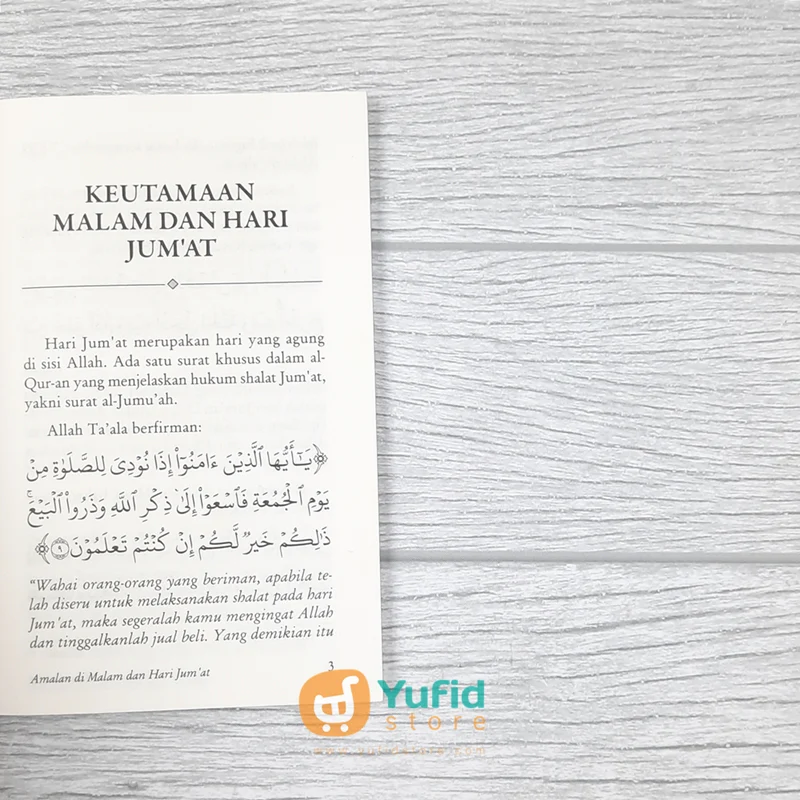 KEUTAMAAN
MALAM DAN HARI
JUM'AT
Hari Jum'at merupakan hari yang agung
di sisi Allah. Ada satu surat khusus dalam al-
Qur-an yang menjelaskan hukum shalat Jum'at,
yakni surat al-Jumu'ah.
Allah Ta'ala berfirman:
﴿يَٰٓأَيُّهَا ٱلَّذِينَ ءَامَنُوٓاْ إِذَا نُودِىَ لِلصَّلَوٰةِ مِن
يَوْمِ ٱلْجُمُعَةِ فَٱسْعَوْاْ إِلَىٰ ذِكْرِ ٱللَّهِ وَذَرُواْ ٱلْبَيْعَ ۚ
ذَٰلِكُمْ خَيْرٌ لَّكُمْ إِن كُنتُمْ تَعْلَمُونَ ٩﴾
“Wahai orang-orang yang beriman, apabila te-
lah diseru untuk melaksanakan shalat pada hari
Jum'at, maka segeralah kamu mengingat Allah
dan tinggalkanlah jual beli. Yang demikian itu
Amalan di Malam dan Hari Jum'at
3
Yufid
store